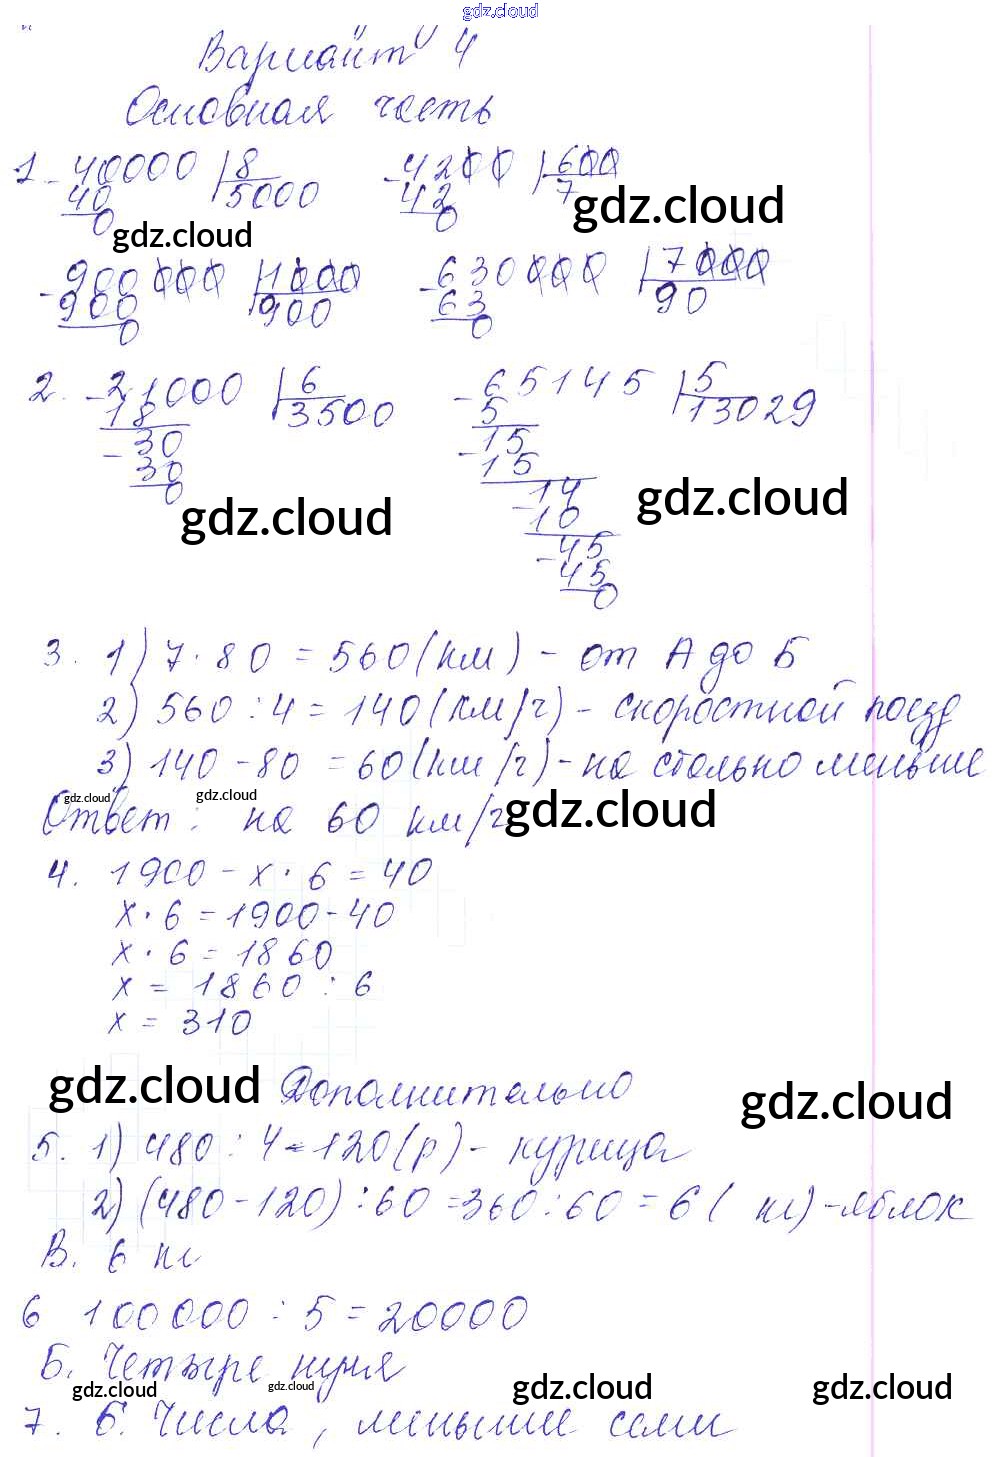 gdz.cloud
Вариант 4
Основная часть
1. -40000 |8 -4200 |600
40 5000 42 7
0 0
gdz.cloud gdz.cloud
-900000 |1000 -630000 |7000
900 900 63 90
0 0
2. -21000 |6 -65145 |5
18 3500 5 13029
-30 -15
30 15
0 -14
gdz.cloud gdz.cloud
10
-45
45
0
3. 1) 7·80 = 560 (км) - от А до Б
2) 560 : 4 = 140 (км/ч) - скоростной поезд
3) 140 - 80 = 60 (км/ч) - на столько меньше
gdz.cloud gdz.cloud gdz.cloud
Ответ: на 60 км/ч
4. 1900 - x · 6 = 40
x · 6 = 1900 - 40
x · 6 = 1860
x = 1860 : 6
x = 310
gdz.cloud Дополнительно gdz.cloud
5. 1) 480 : 4 = 120 (р) - курица
2) (480 - 120) : 60 = 360 : 60 = 6 (кг) - яблок
В. 6 кг
6 100000 : 5 = 20000
Б. Четыре нуля
gdz.cloud gdz.cloud gdz.cloud gdz.cloud
7. Б. Числа, меньшие семи